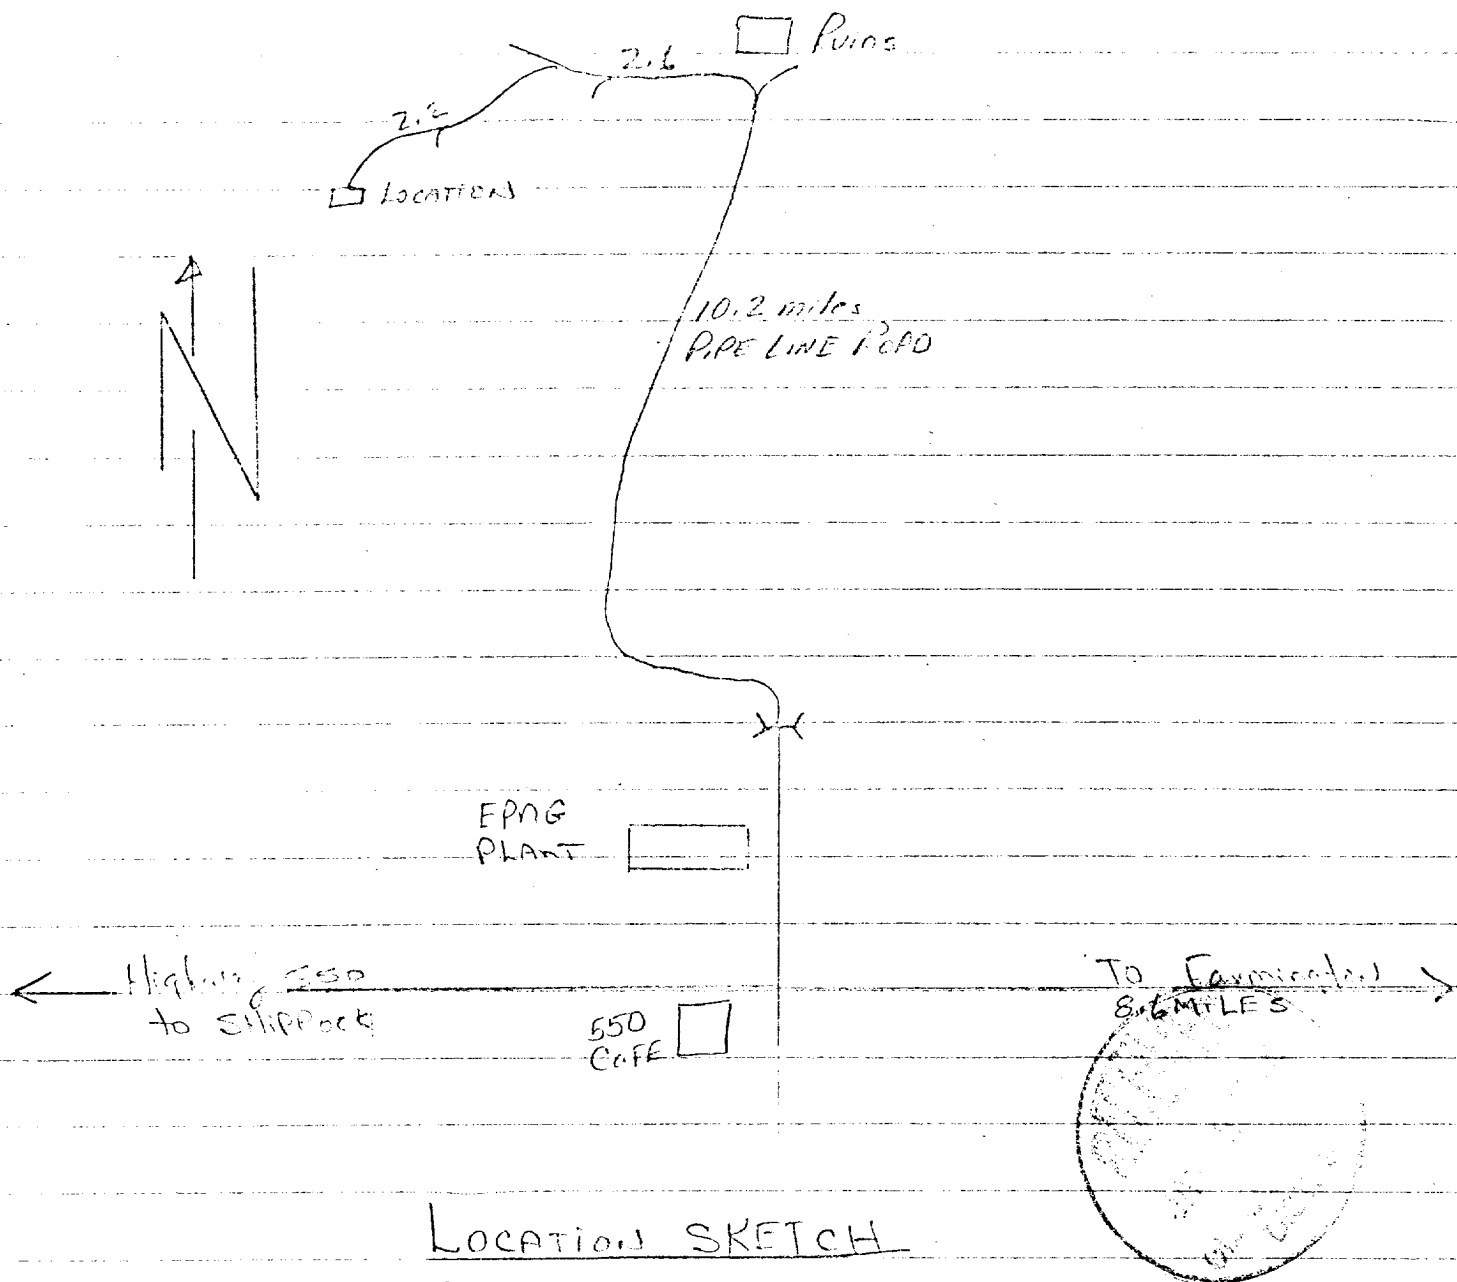 Ruins
2.6
2.2
LOCATION
N
10.2 miles
PIPE LINE ROAD
EPNG
PLANT
Highway 550
to SHIPROCK
To Farmington
8.6 MILES
550
CAFE
LOCATION SKETCH